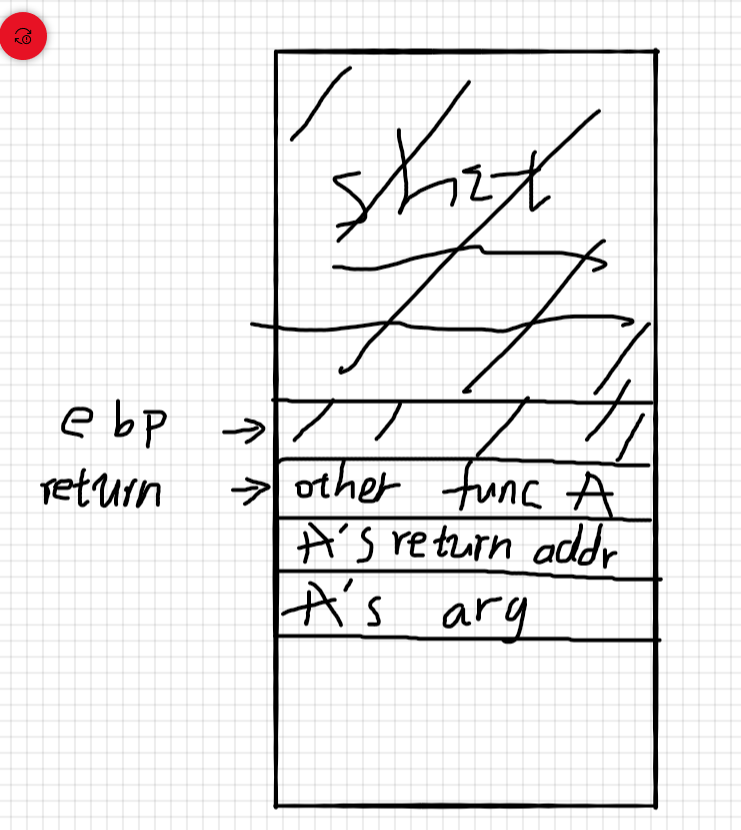 shit
ebp →
return → other func A
A's return addr
A's arg